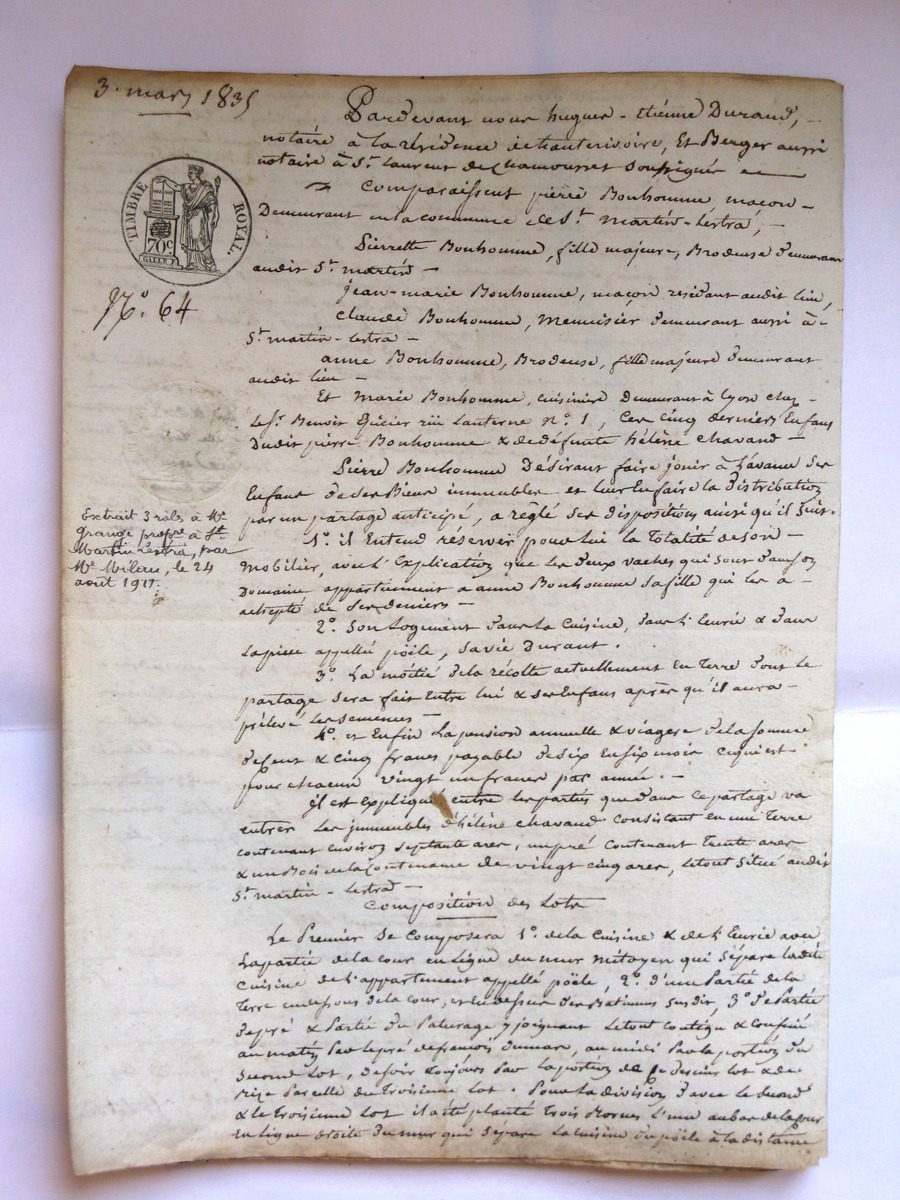 3. mars 1835
Pardevant nous hugues-Etienne Durand,
notaire à la résidence de Chanterivoire, Et Berger aussi
notaire à St. Laurent de Chamousset Soussignés
Comparaissent pierre Bonhomme maçon
Demeurant en la commune de St. Martin-Lestra,
TIMBRE ROYAL.
70c.
Pierrette Bonhomme, fille majeure, Brodeuse demeurant
audit St. martin
N°. 64
Jean-marie Bonhomme, maçon résidant audit lieu,
Claude Bonhomme, Menuisier demeurant aussi à
St. martin-Lestra
anne Bonhomme, Brodeuse, fille majeure demeurant
audit lieu
Et Marie Bonhomme, cuisinière Demeurant à Lyon chez
le Sr. Benoit Epicier rüe Lanterne N°. 1, Ces cinq derniers Enfans
Dudit pierre Bonhomme & de défunte hélène Chavand
Pierre Bonhomme Désirant faire jouir à l'avance ses
Enfans de ses Biens immeubles et leur En faire la distribution
par un partage anticipé, a réglé ses dispositions ainsi qu'il suit.
Extrait 3 rôles à Mr
Grange propre à St.
Martin Lestra, par
Me Milan, le 24
août 1911.
1°. il Entend réserver pour lui la Totalité de son
Mobilier, avec l'Explication que les deux vaches qui sont dans son
Domaine appartiennent à anne Bonhomme sa fille qui les a
achepté de ses deniers
2°. son Logement dans la Cuisine, dans l'Eurie & dans
la piesse appellé pöele, sa vie Durant.
3°. La moitié de la récolte actuellement En Terre dont le
partage sera fait Entre lui & ses Enfans après qu'il aura
prélevé les semences
4°. et Enfin La pension annuelle & viagère de la somme
de Cent & cinq francs payable de six En six mois ce qui est
pour chacun vingt un francs par année.
il est Expliqué entre les parties que dans ce partage va
entrer les immeubles d'hélène Chavand Consistant en une Terre
contenant environ septante ares, un pré Contenant Trente ares
& un Bois de la Contenance de vingt cinq ares, le tout situé audit
St. martin-Lestra
Composition des Lots
Le Premier se composera 1°. de la Cuisine & de l'Eurie avec
la partie de la cour en Ligne du mur mitoyen qui sépare ladite
Cuisine de l'appartement appellé pöele, 2°. d'une Partie de la
Terre en dessous de la cour, et en dessus des Batimens susdit, 3°. de Partie
de pré & Partie du Paturage y joignant Le tout contigu & confiné
au matin Par le pré de françois Dumare, au midi Par la portion du
second Lot, de soir toujours Par la portion de ce dernier Lot & de
bize Parcelle du Troisième Lot. Pour la division d'avec le second
& le Troisième Lot il a été planté Trois Bornes L'une au bas de la cour
en Ligne droite du mur qui sépare La cuisine du pöele à la distance